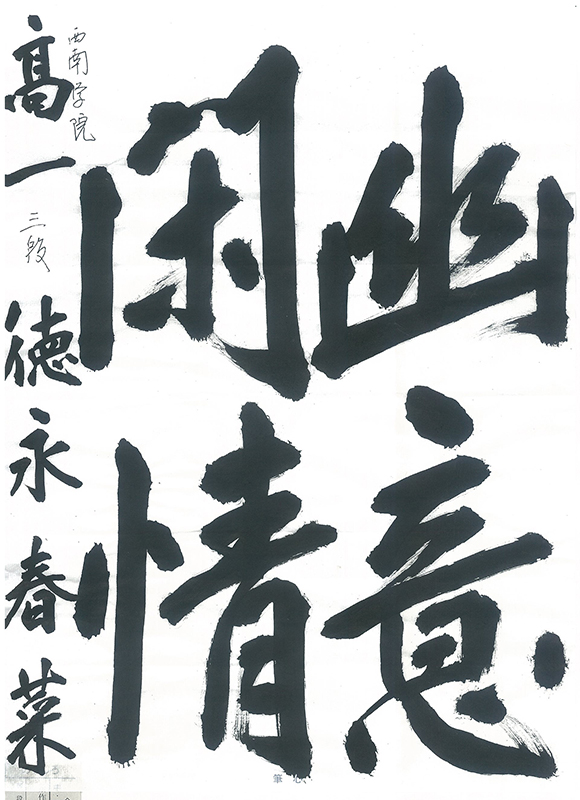 幽意
閑情
西南学院
高一
三段
徳永春菜
筆心